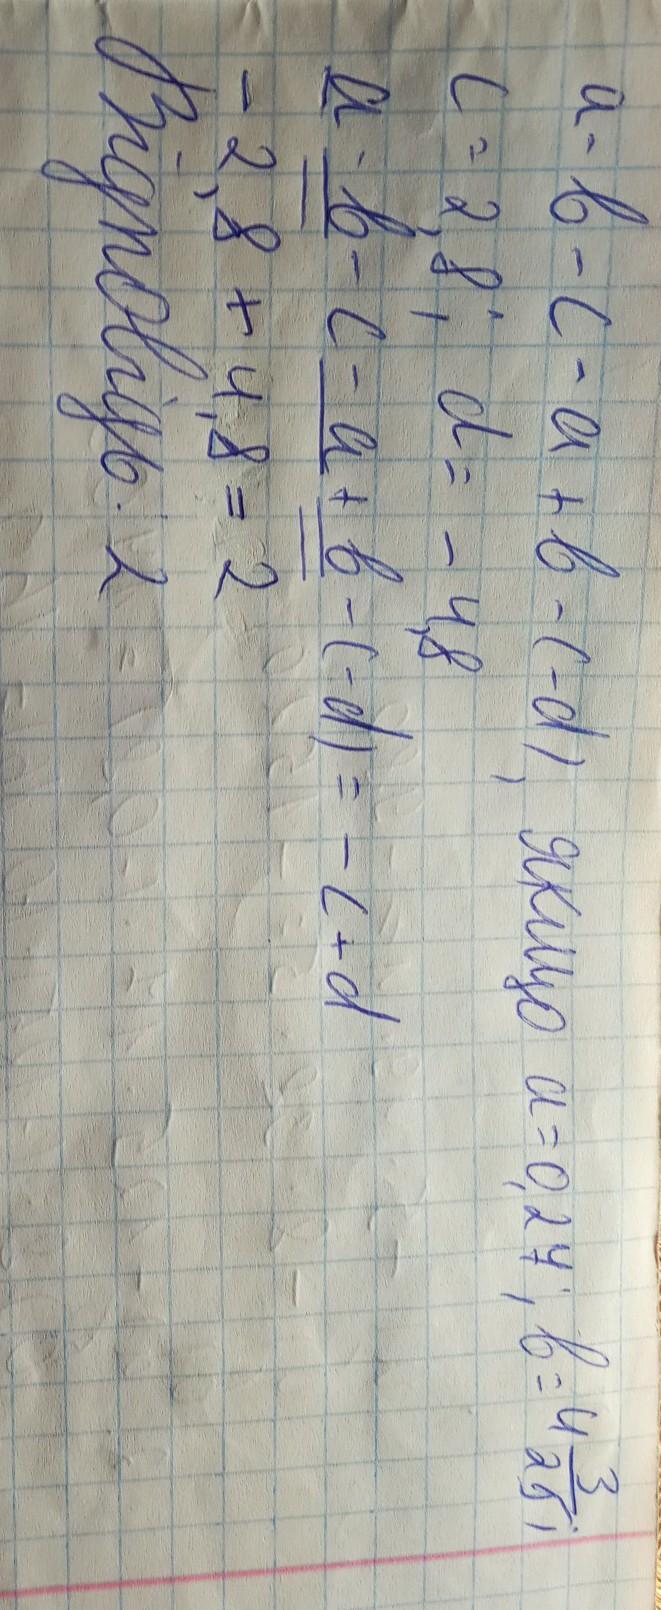 a - b - c - a + b - (-d), якщо a = 0,27; b = 4 3/25;
c = 2,8; d = - 4,8
a - b - c - a + b - (-d) = - c + d
- 2,8 + 4,8 = 2
Відповідь. 2